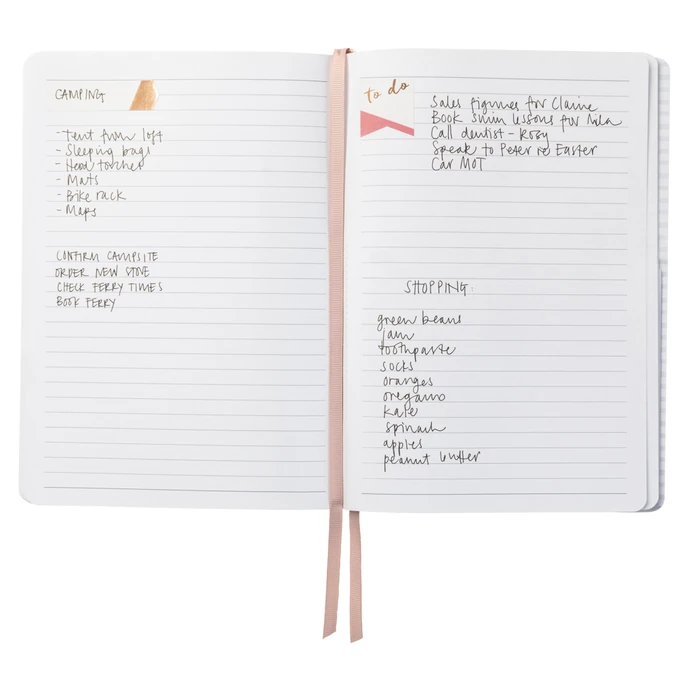 CAMPING
- Tent from loft
- Sleeping bags
- Head torches
- Mats
- Bike rack
- Maps
CONFIRM CAMPSITE
ORDER NEW STOVE
CHECK FERRY TIMES
BOOK FERRY
to do
Sales figures for Claire
Book swim lessons for Mila
Call dentist - Rosy
Speak to Peter re Easter
Car MOT
SHOPPING:
green beans
jam
toothpaste
socks
oranges
oregano
kale
spinach
apples
peanut butter